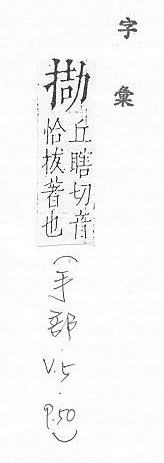 字彙
丘瞎切音
恰拔著也
(手部 V.5. P.50)